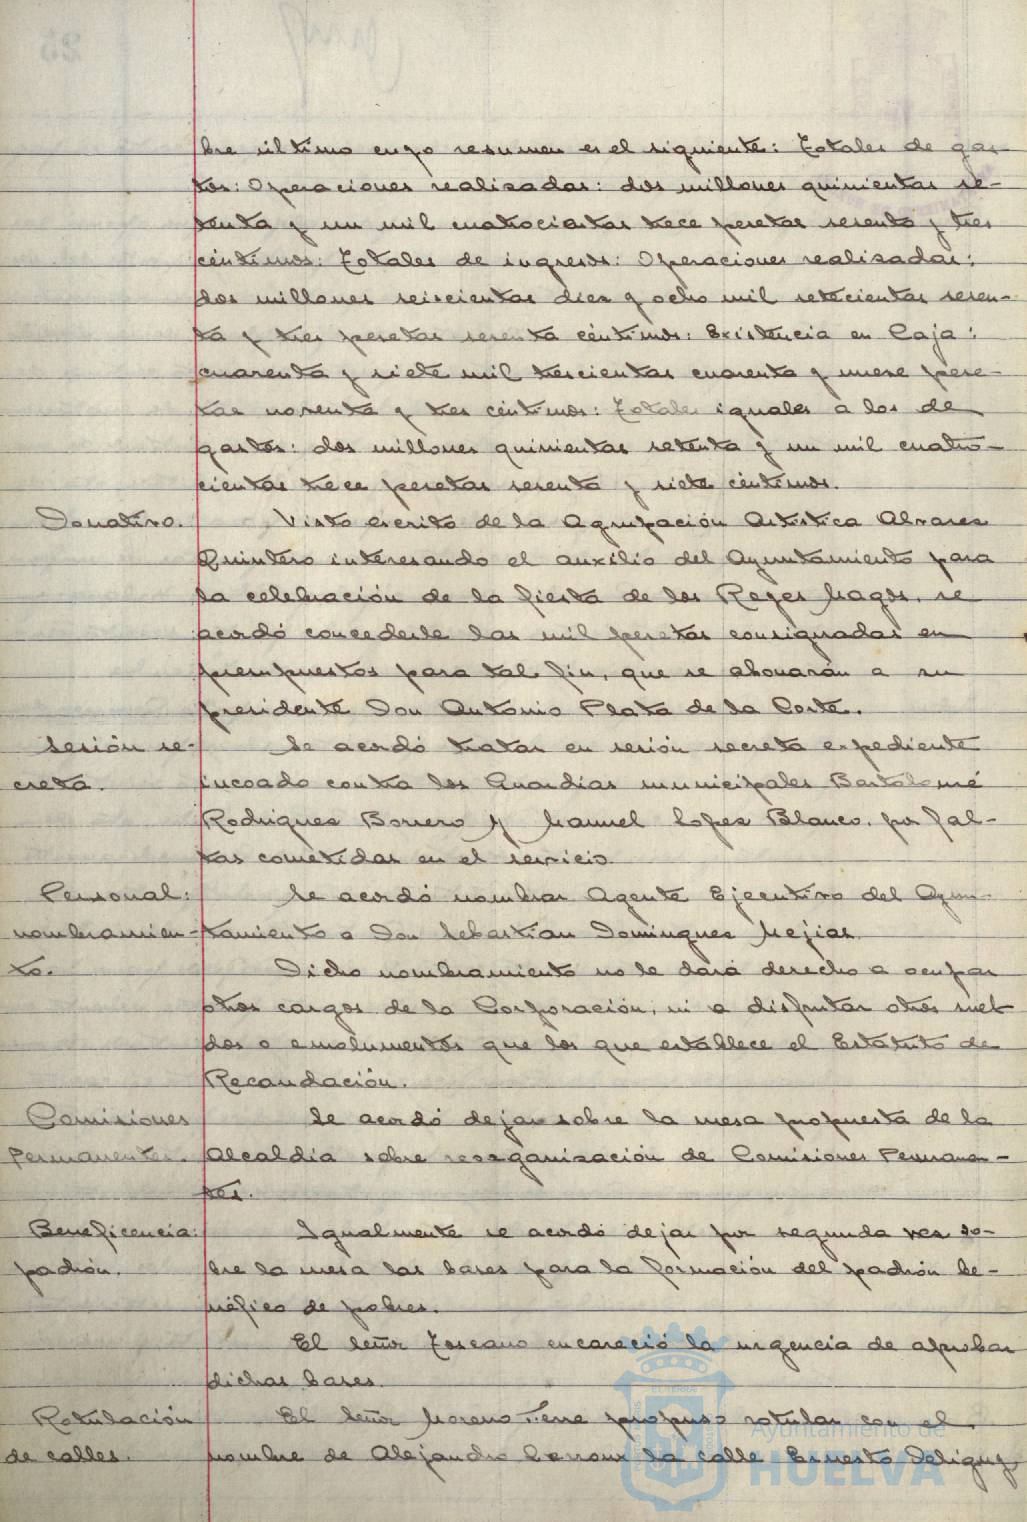 bre último cuyo resumen es el siguiente: Totales de gas-
tos: Operaciones realizadas: dos millones quinientas se-
tenta y un mil cuatrocientas trece pesetas sesenta y tres
céntimos: Totales de ingresos: Operaciones realizadas:
dos millones seiscientas diez y ocho mil setecientas sesen-
ta y tres pesetas sesenta céntimos: Existencia en Caja:
cuarenta y siete mil trescientas cuarenta y nueve pese-
tas noventa y tres céntimos: Totales iguales a los de
gastos: dos millones quinientas setenta y un mil cuatro-
cientas trece pesetas sesenta y siete céntimos.
Donativo. Visto escrito de la Agrupación Artística Alvarez
Quintero interesando el auxilio del Ayuntamiento para
la celebración de la fiesta de los Reyes Magos, se
acordó concederle las mil pesetas consignadas en
presupuestos para tal fin, que se abonarán a su
presidente Don Antonio Plata de la Corte.
Sesión se- Se acordó tratar en sesión secreta expediente
creta. incoado contra los Guardias municipales Bartolomé
Rodriguez Borrero y Manuel Lopez Blanco, por fal-
tas cometidas en el servicio.
Personal: Se acordó nombrar Agente Ejecutivo del Ayun-
nombramien- tamiento a Don Sebastian Dominguez Mejias.
to. Dicho nombramiento no le dará derecho a ocupar
otros cargos de la Corporación, ni a disfrutar otros suel-
dos o emolumentos que los que establece el Estatuto de
Recaudación.
Comisiones Se acordó dejar sobre la mesa propuesta de la
Permanentes. Alcaldía sobre reorganización de Comisiones Permanen-
tes.
Beneficencia: Igualmente se acordó dejar por segunda vez so-
padrón. bre la mesa las bases para la formación del padrón be-
néfico de pobres.
El señor Toscano encareció la urgencia de aprobar
dichas bases.
Rotulación El Señor Moreno propuso rotular con el
de calles. nombre de Alejandro Lerroux la calle Ernesto Deligny
Ayuntamiento de
HUELVA